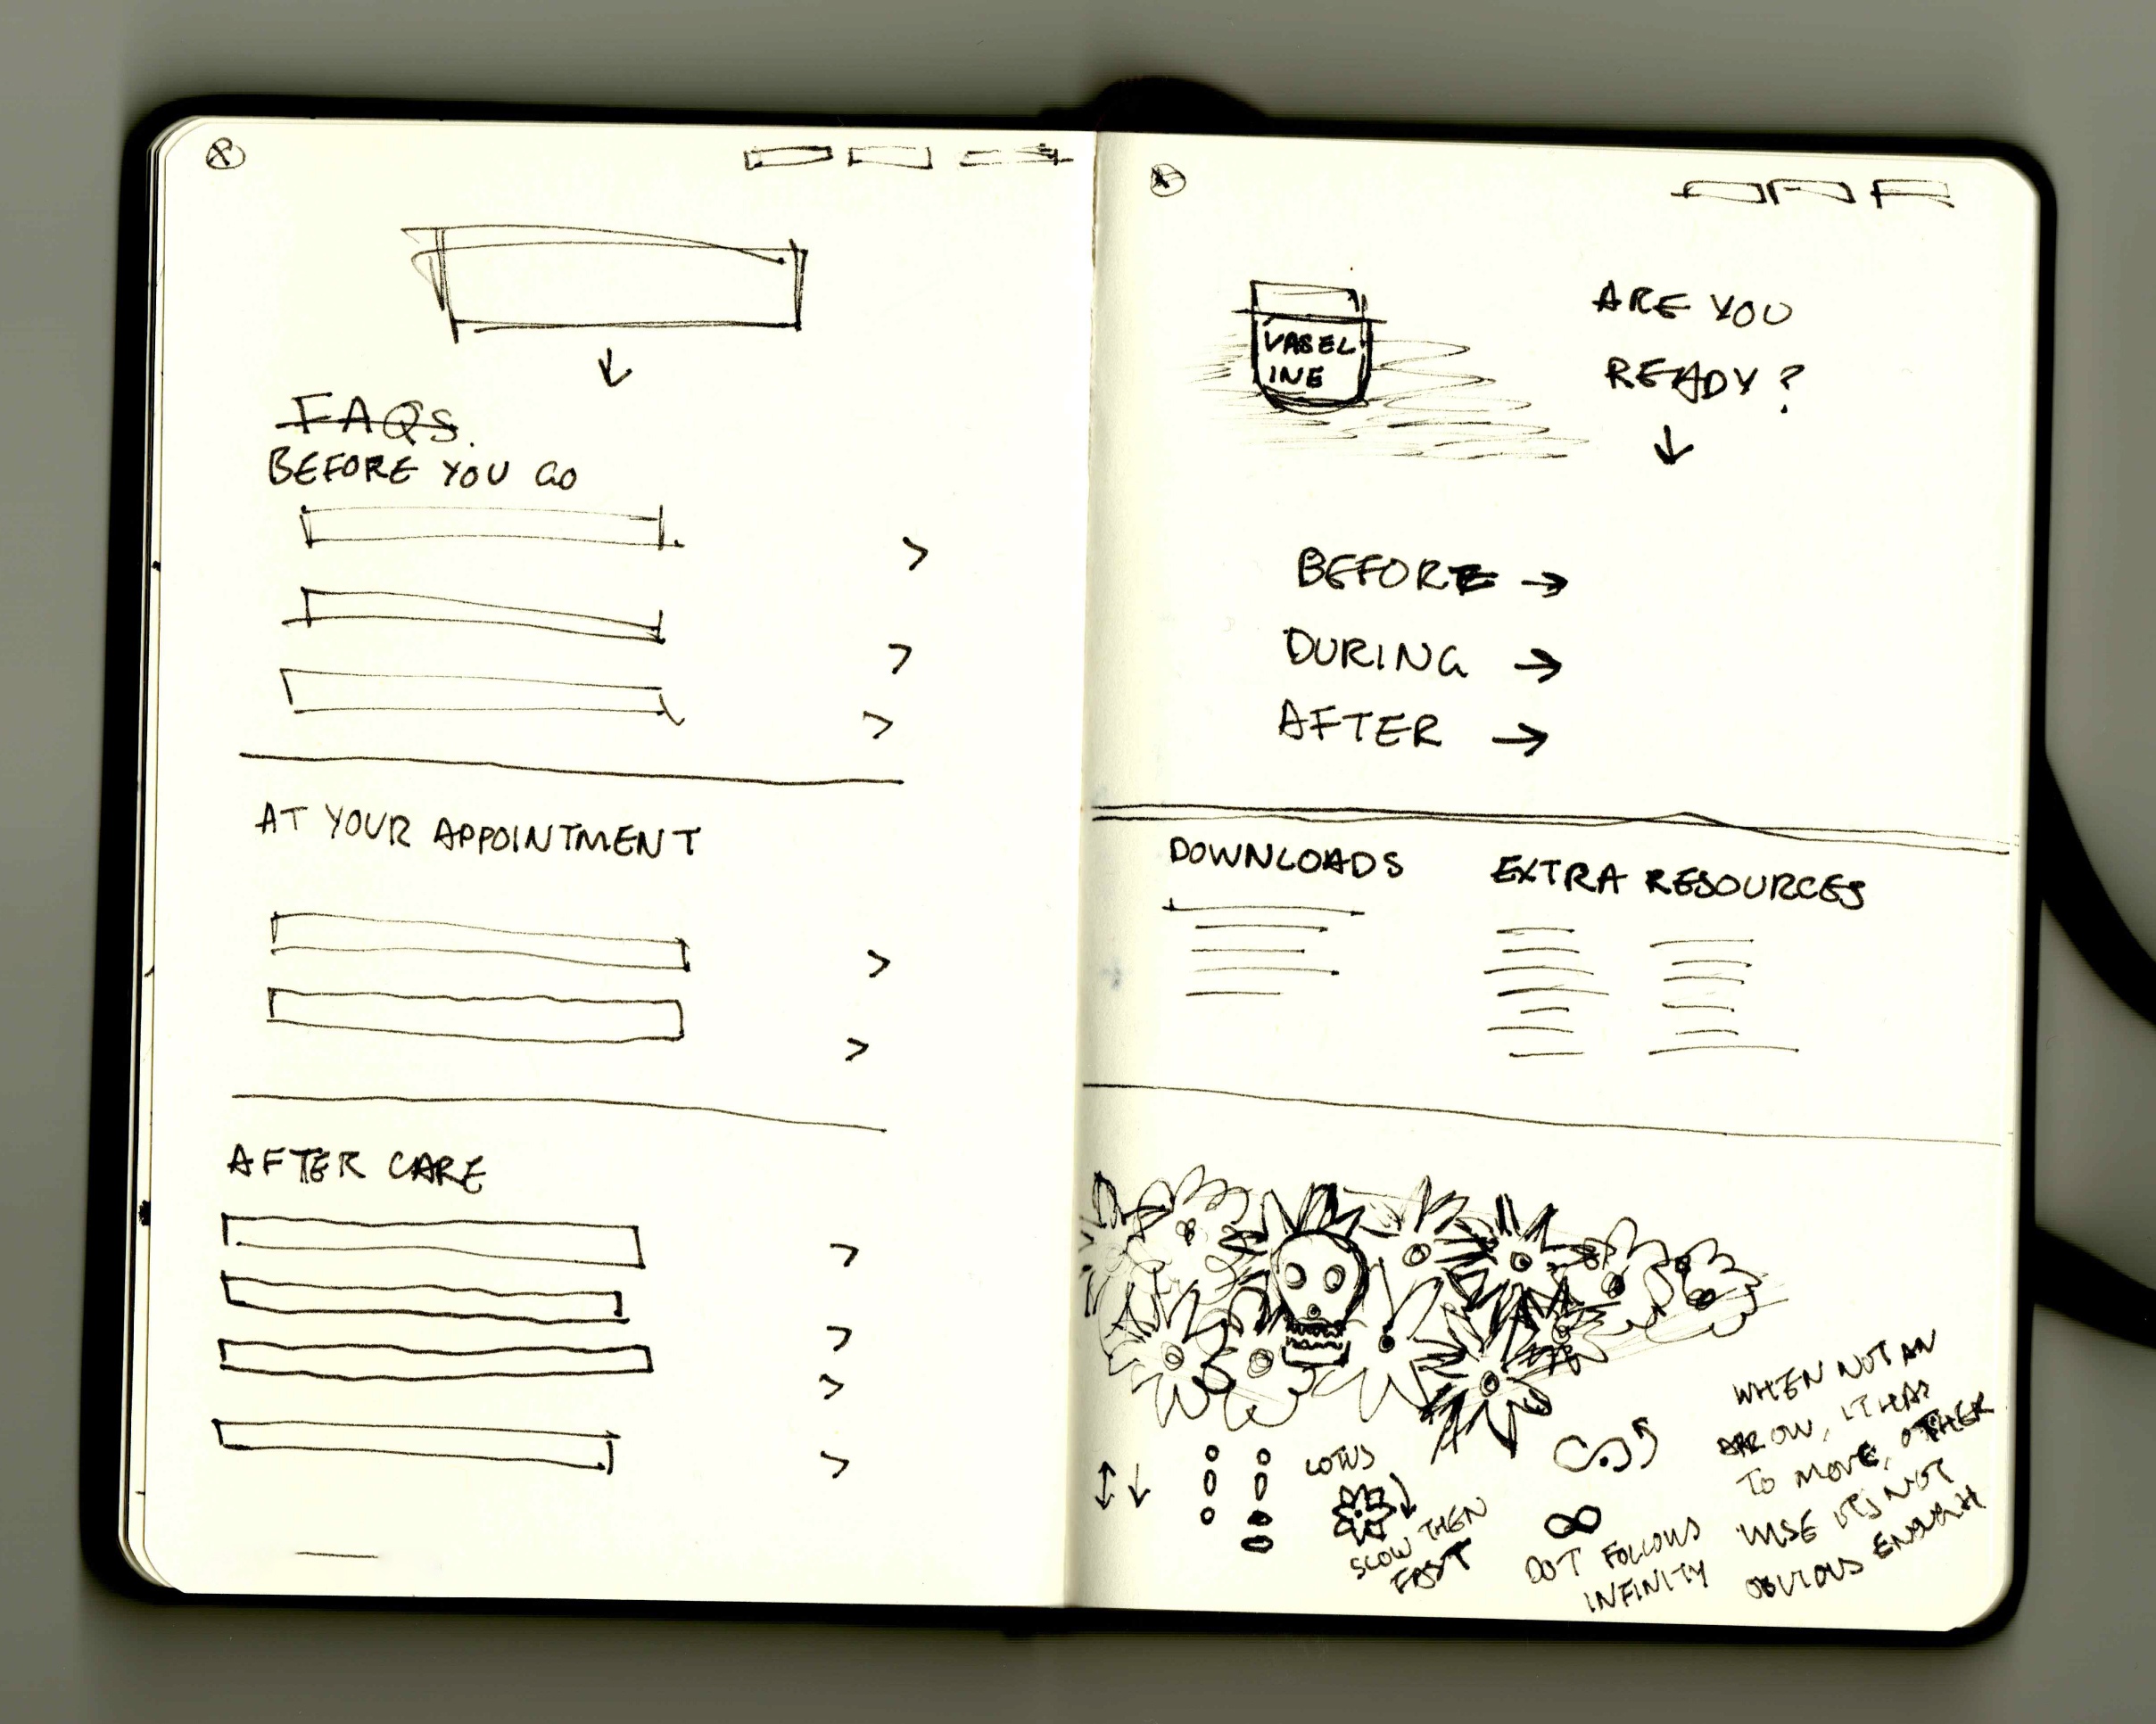 FAQS.
BEFORE YOU GO
AT YOUR APPOINTMENT
AFTER CARE
VASEL
INE
ARE YOU
READY?
BEFORE →
DURING →
AFTER →
DOWNLOADS
EXTRA RESOURCES
LOTUS
SLOW THEN
FAST
DOT FOLLOWS
INFINITY
WHEN NOT AN
ARROW, IT HAS
TO MOVE, OTHER
WISE IT'S NOT
OBVIOUS ENOUGH